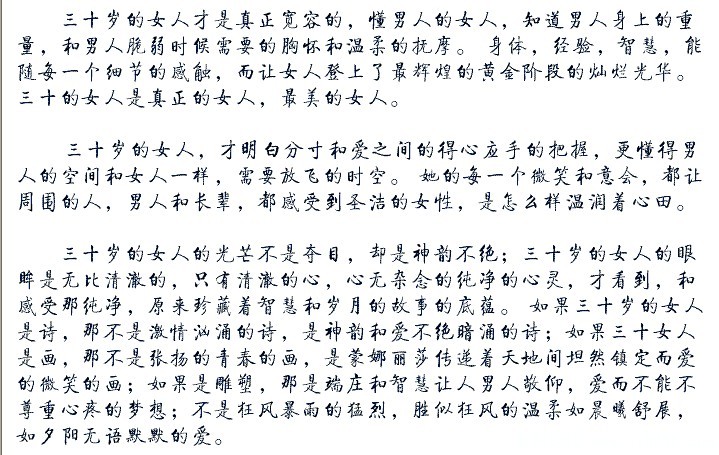 三十岁的女人才是真正宽容的，懂男人的女人，知道男人身上的重
量，和男人脆弱时候需要的胸怀和温柔的抚摩。 身体，经验，智慧，能
随每一个细节的感触，而让女人登上了最辉煌的黄金阶段的灿烂光华。
三十的女人是真正的女人，最美的女人。
三十岁的女人，才明白分寸和爱之间的得心应手的把握，更懂得男
人的空间和女人一样，需要放飞的时空。 她的每一个微笑和意会，都让
周围的人，男人和长辈，都感受到圣洁的女性，是怎么样温润着心田。
三十岁的女人的光芒不是夺目，却是神韵不绝；三十岁的女人的眼
眸是无比清澈的，只有清澈的心，心无杂念的纯净的心灵，才看到，和
感受那纯净，原来珍藏着智慧和岁月的故事的底蕴。 如果三十岁的女人
是诗，那不是激情汹涌的诗，是神韵和爱不绝暗涌的诗；如果三十女人
是画，那不是张扬的青春的画，是蒙娜丽莎传递着天地间坦然镇定而爱
的微笑的画；如果是雕塑，那是端庄和智慧让人男人敬仰，爱而不能不
尊重心疼的梦想；不是狂风暴雨的猛烈，胜似狂风的温柔如晨曦舒展，
如夕阳无语默默的爱。